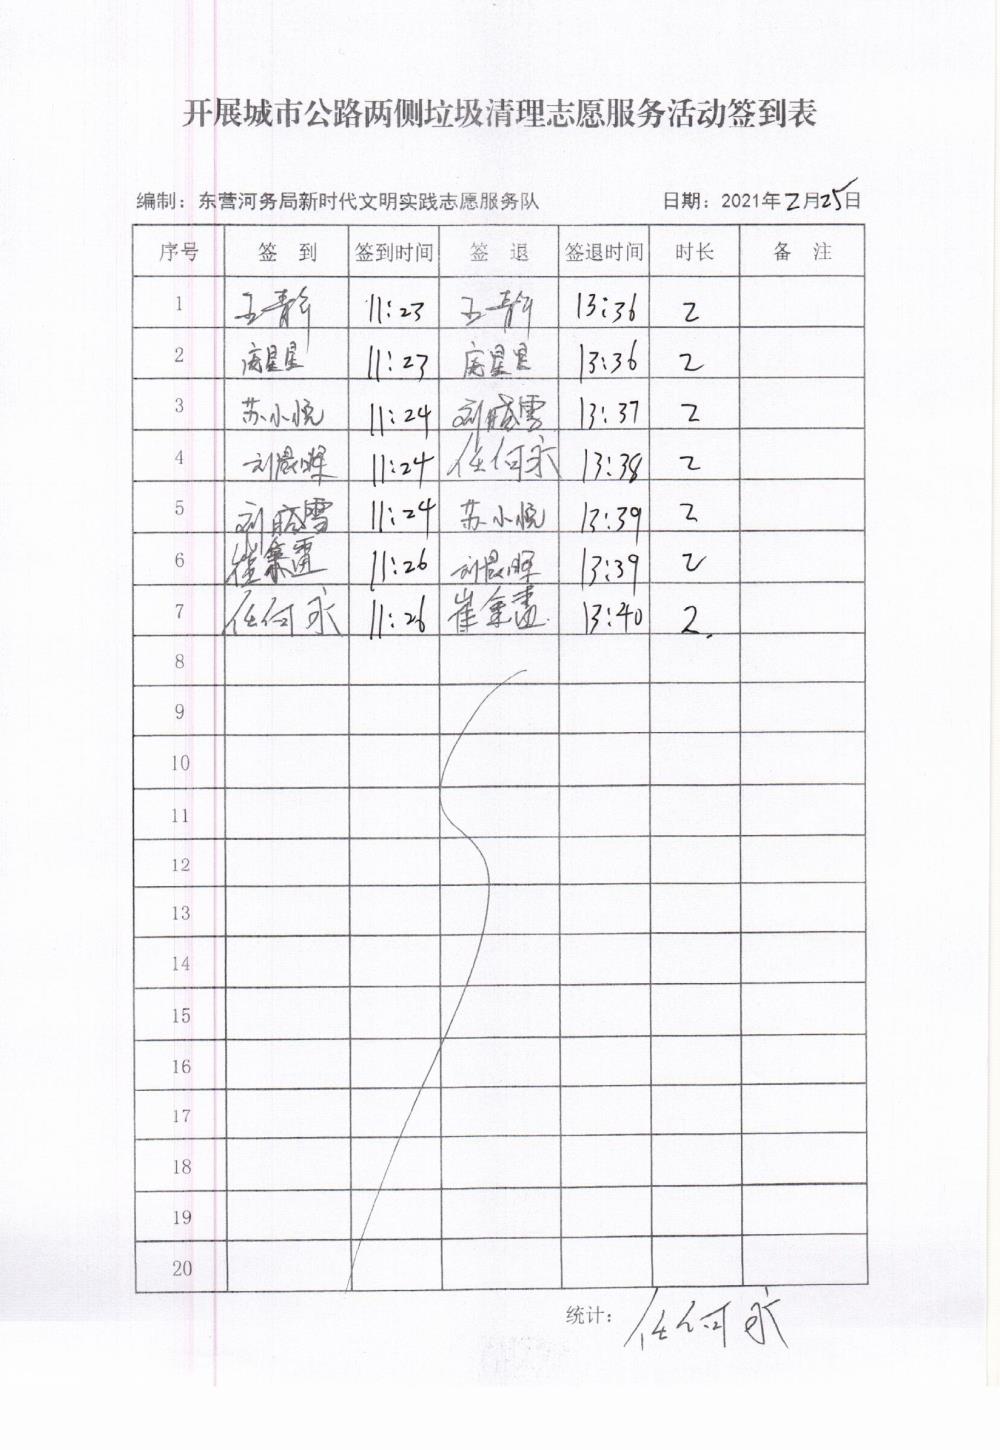 开展城市公路两侧垃圾清理志愿服务活动签到表
编制：东营河务局新时代文明实践志愿服务队 日期：2021年2月25日
序号 签 到 签到时间 签 退 签退时间 时长 备 注
1 王静 11:23 王静 13:36 2
2 庞星星 11:23 庞星星 13:36 2
3 苏小悦 11:24 刘晓雪 13:37 2
4 刘晨晖 11:24 任何永 13:38 2
5 刘晓雪 11:24 苏小悦 13:39 2
6 11:26 刘晨晖 13:39 2
7 任何永 11:26 13:40 2.
8
9
10
11
12
13
14
15
16
17
18
19
20
统计：任何永